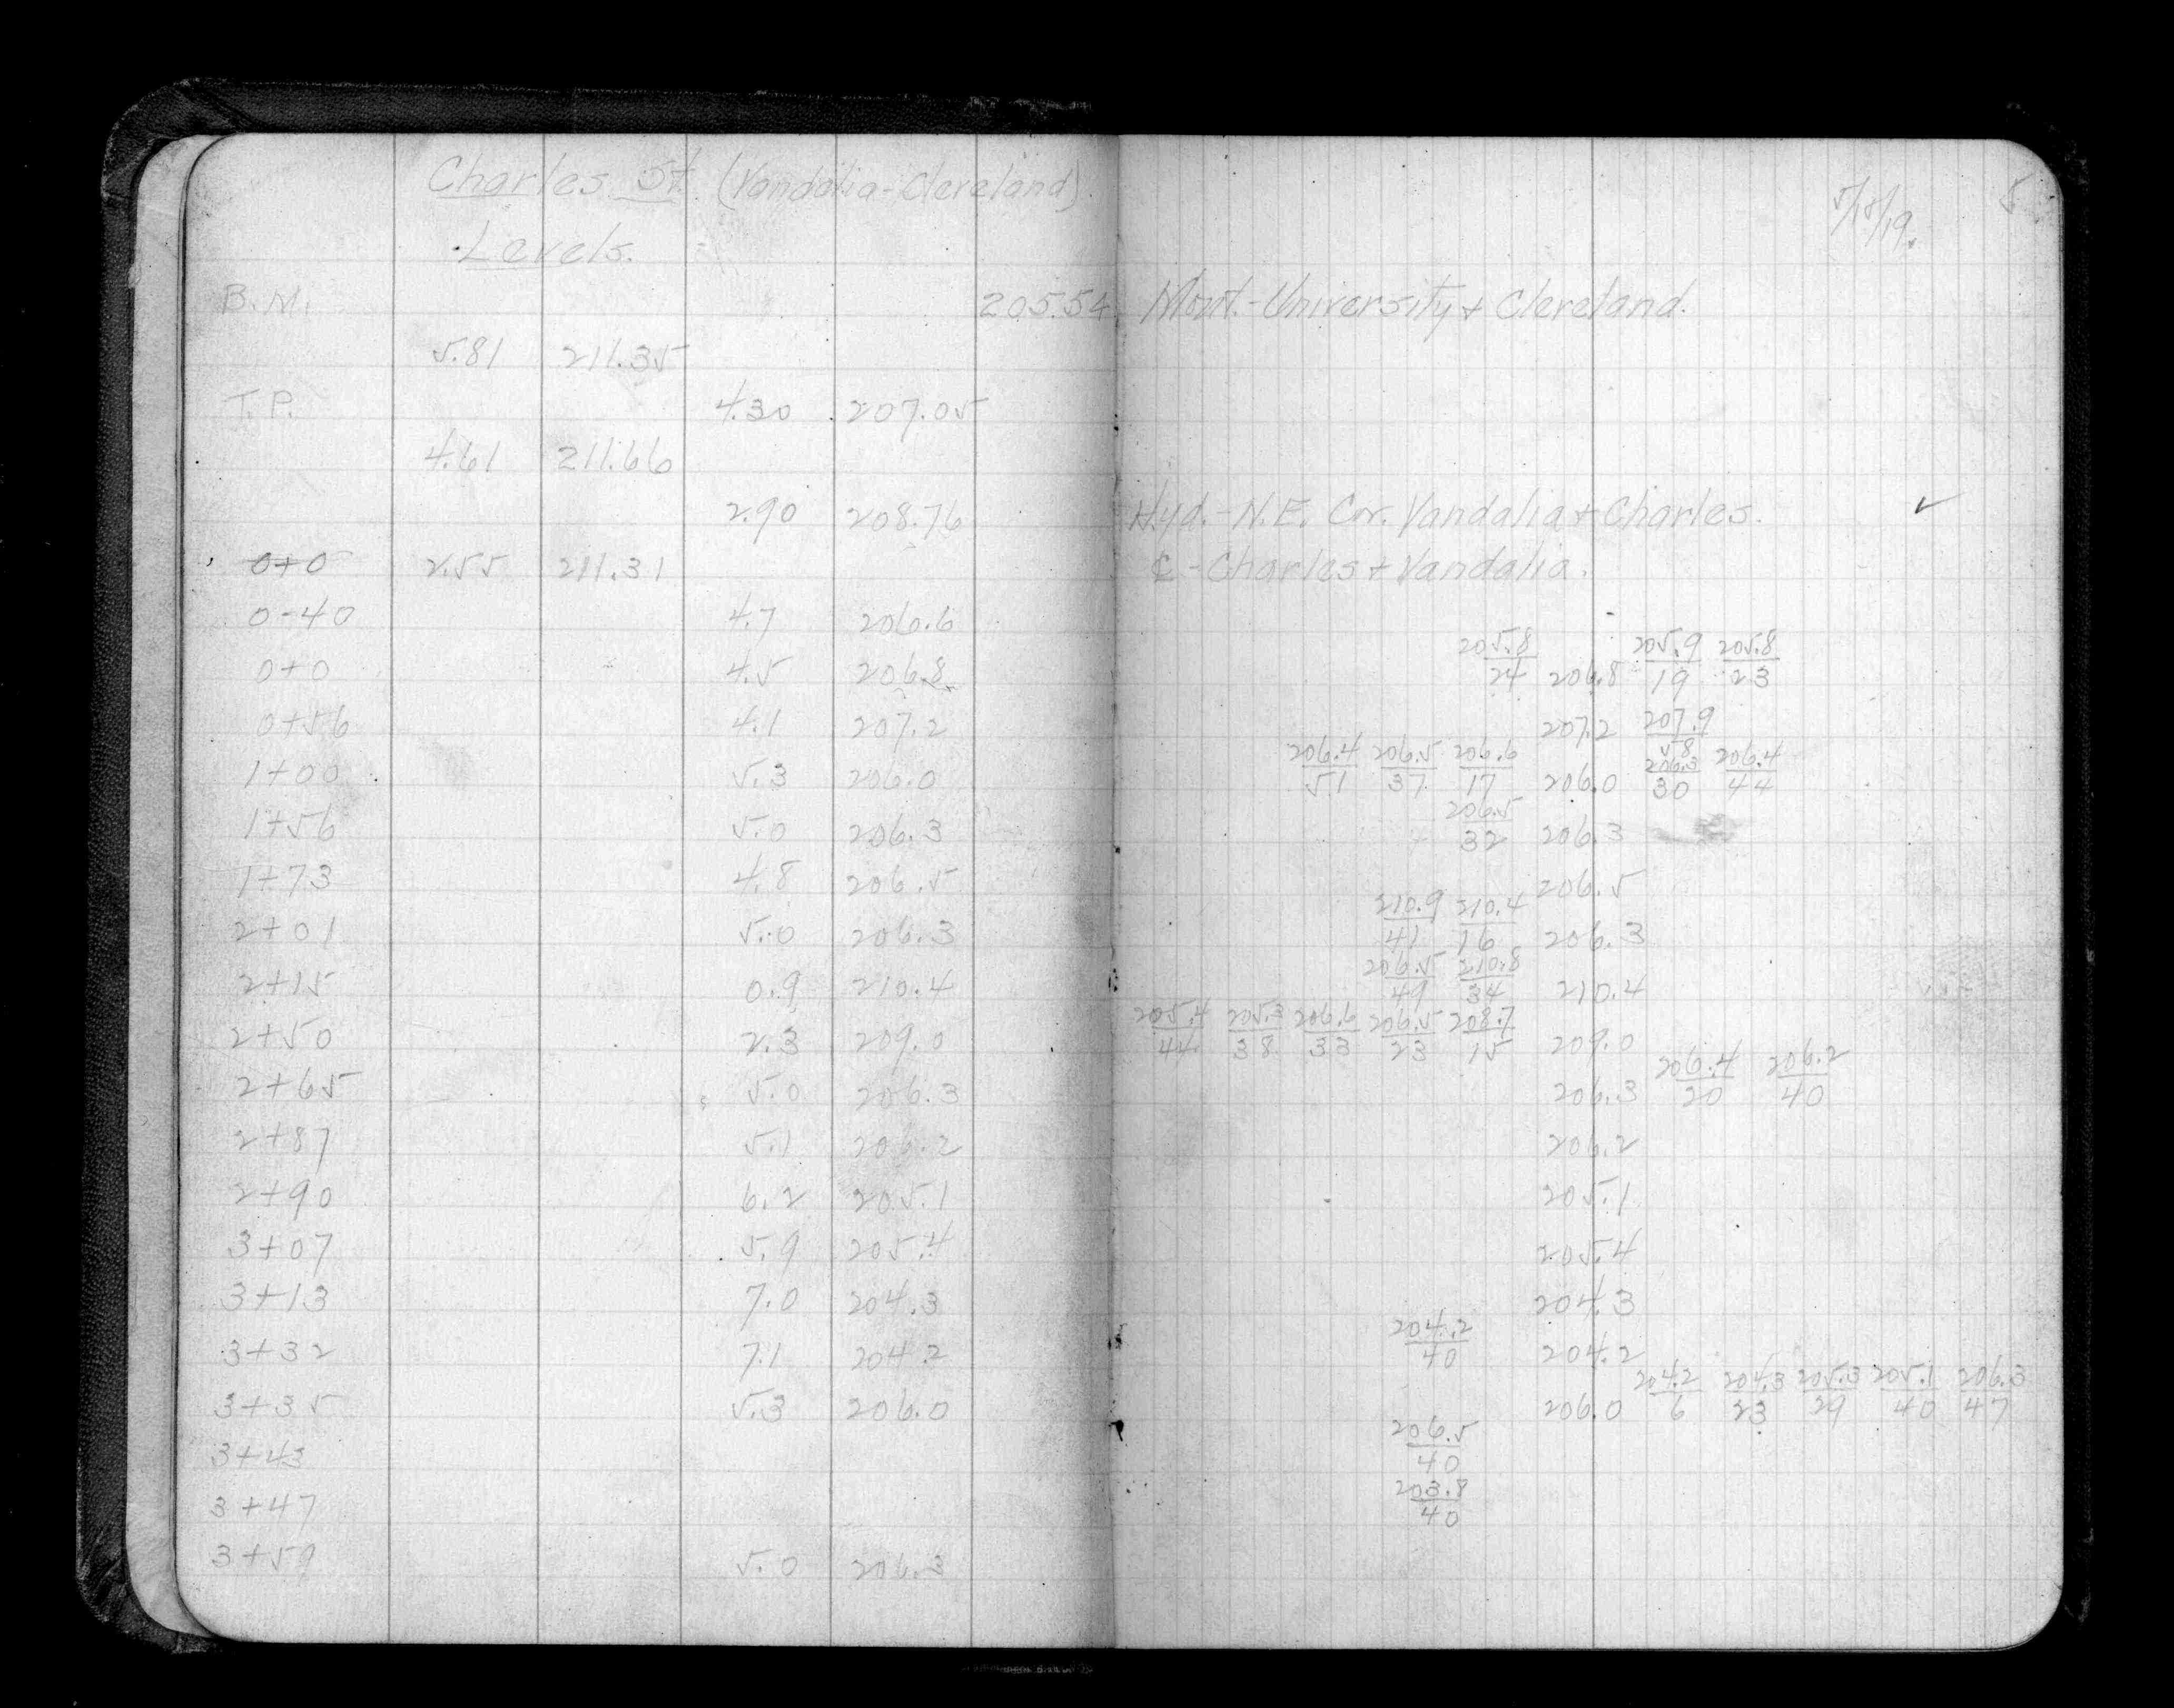 Charles St. (Vandalia-Cleveland)
Levels.
B.M. 205.54
5.81 211.35
T.P. 4.30 207.05
4.61 211.66
2.90 208.76
0+0 2.55 211.31
0-40 4.7 206.6
0+0 4.5 206.8
0+56 4.1 207.2
1+00 5.3 206.0
1+56 5.0 206.3
1+73 4.8 206.5
2+01 5.0 206.3
2+15 0.9 210.4
2+50 2.3 209.0
2+65 5.0 206.3
2+87 5.1 206.2
2+90 6.2 205.1
3+07 5.9 205.4
3+13 7.0 204.3
3+32 7.1 204.2
3+35 5.3 206.0
3+43
3+47
3+59 5.0 206.3
5/15/19. 5
Mont.-University + Cleveland.
Hyd.-N.E. Cor. Vandalia + Charles. ✓
℄-Charles + Vandalia.
205.8/24 206.8 205.9/19 205.8/23
207.2 207.9/58
206.4/51 206.5/37 206.6/17 206.0 206.3/30 206.4/44
206.5/32 206.3
206.5
210.9/41 210.4/16 206.3
206.5/49 210.8/34 210.4
205.4/44 205.3/38 206.6/33 206.5/23 208.7/15 209.0
206.3 206.4/20 206.2/40
206.2
205.1
205.4
204.3
204.2/40 204.2
206.0 204.2/6 204.3/23 205.3/29 205.1/40 206.3/47
206.5/40
203.8/40